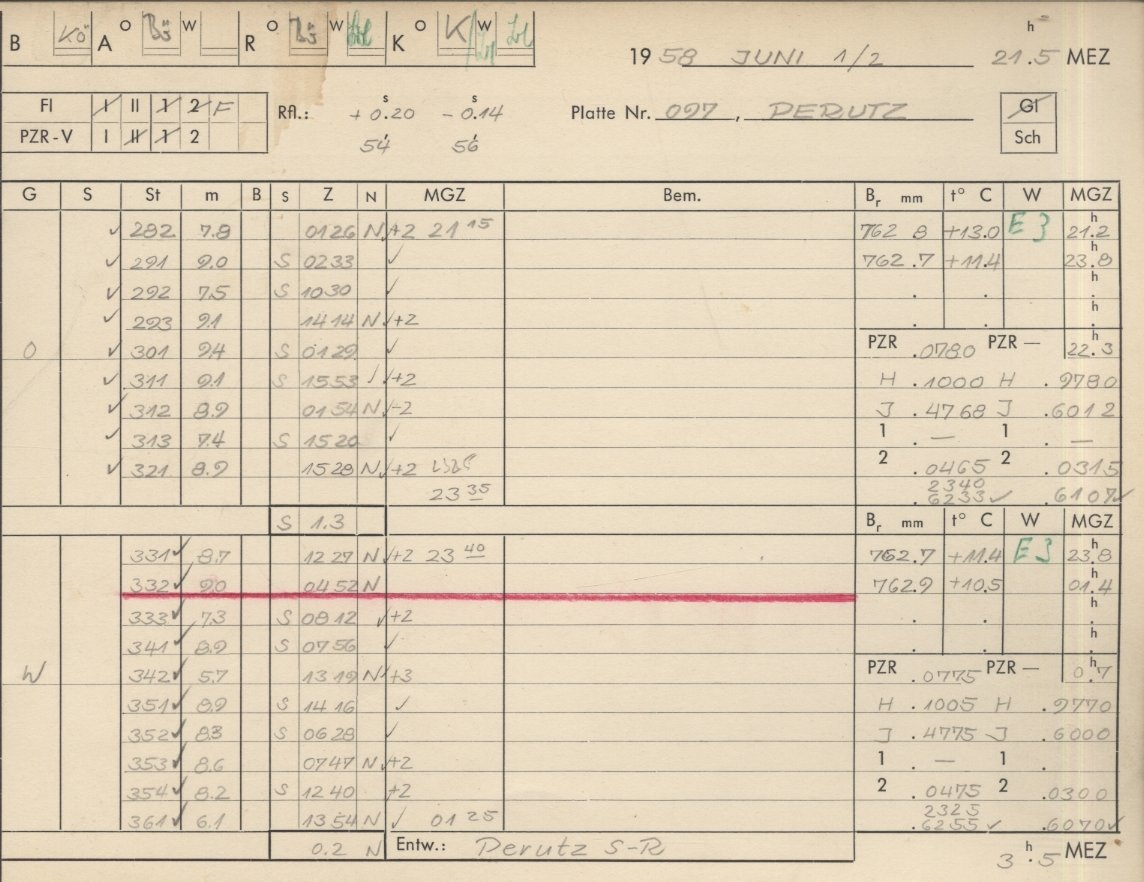 B Kö A O Bü W R O Bü W K O K W
1958 JUNI 1/2 21h.5 MEZ
Fl I II 1 2 F
PZR-V I II 1 2
Rfl.: +0s.20 -0s.14
54 56
Platte Nr. 097, PERUTZ
Gl
Sch
G S St m B S Z N MGZ Bem. Br mm t° C W MGZ
✓ 282 7.8 0126 N ✓+2 21 15 762 8 +13.0 E 3 21h.2
✓ 291 9.0 S 0233 ✓ 762.7 +11.4 23h.8
✓ 292 7.5 S 1030 ✓ . . h.
✓ 293 9.1 1414 N ✓+2 . . h.
O ✓ 301 9.4 S 0129 ✓ PZR .0780 PZR — 22h.3
✓ 311 9.1 S 1553 ✓ ✓+2 H .1000 H .9780
✓ 312 8.9 0154 N ✓-2 J .4768 J .6012
✓ 313 7.4 S 1520 ✓ 1 . — 1 . —
✓ 321 8.9 1528 N ✓+2 2 .0465 2 .0315
23 35 2340
.6233 ✓ .6107 ✓
S 1.3 Br mm t° C W MGZ
331 ✓ 8.7 1227 N ✓+2 23 40 762.7 +11.4 E 3 23h.8
332 ✓ 9.0 0452 N 762.9 +10.5 01h.4
333 ✓ 7.3 S 0812 ✓+2 . . h.
341 ✓ 8.9 S 0756 ✓ . . h.
W 342 ✓ 5.7 1319 N ✓+3 PZR .0775 PZR — 0h.7
351 ✓ 8.9 S 1416 ✓ H .1005 H .9770
352 ✓ 8.3 S 0628 ✓ J .4775 J .6000
353 ✓ 8.6 0747 N ✓+2 1 . — 1 .
354 ✓ 8.2 S 1240 +2 2 .0475 2 .0300
361 ✓ 6.1 1354 N ✓ 01 25 2325
.6255 ✓ .6070 ✓
0.2 N Entw.: Perutz S-R 3h.5 MEZ